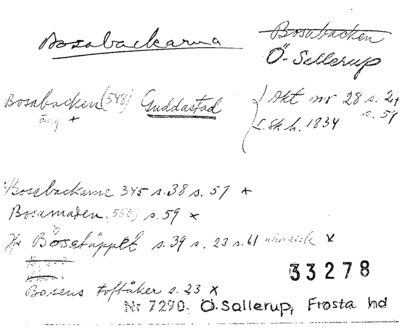 Bosabackarna
Bosabacken
Ö. Sallerup
Bosabacken (548) Guddastad
äng +
Akt nr 28 s. 24
s. 59
L. Sk. h. 1834
Bosebackarne 345 s. 38 s. 57 x
Bosamaden 550 s. 59 x
Bosatäppet s. 39 s. 23 s. 61 x
33278
Bosens toftåker s. 23 x
Nr 7290. Ö. Sallerup, Frosta hd